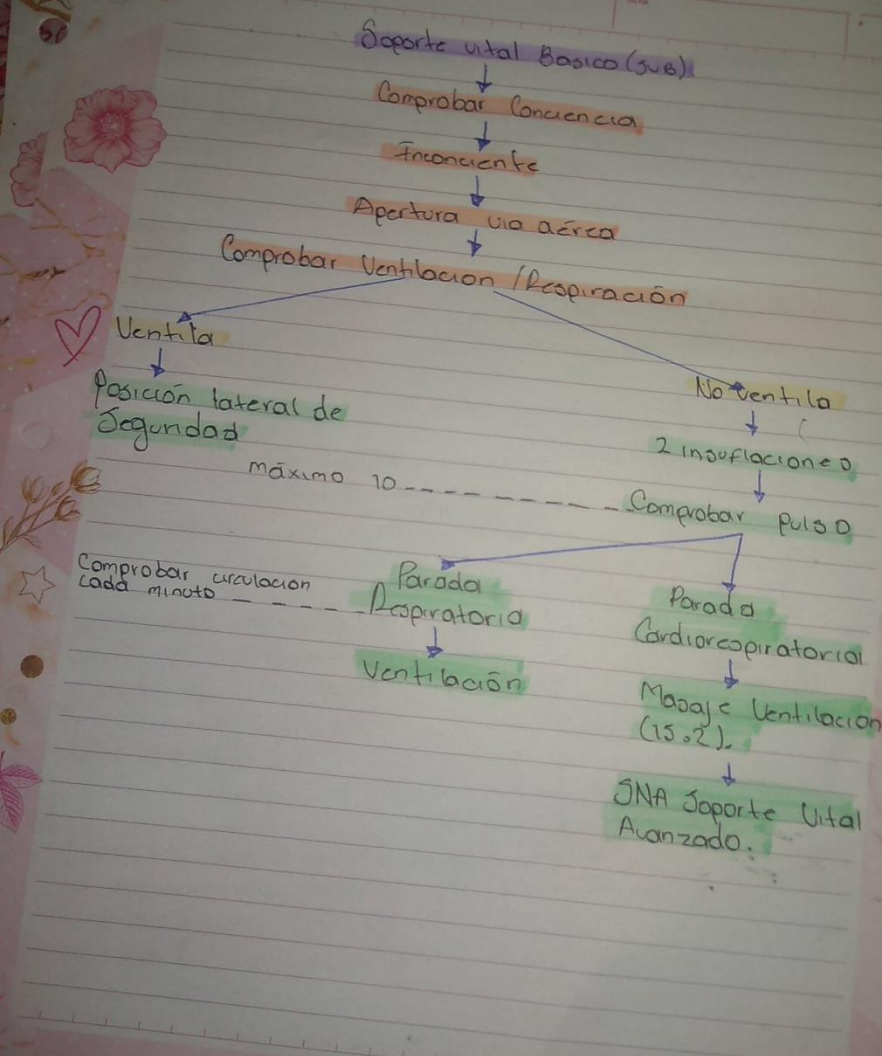 Soporte vital Basico (SVB)
Comprobar Conciencia
Inconciente
Apertura via aérea
Comprobar Ventilacion / Respiración
Ventila
No ventila
Posición lateral de
Seguridad
2 insuflaciones
máximo 10
Comprobar pulso
Comprobar circulacion
cada minuto
Parada
Respiratoria
Parada
Cardiorespiratorial
Ventilación
Masaje Ventilacion
(15.2).
SNA Soporte Vital
Avanzado.